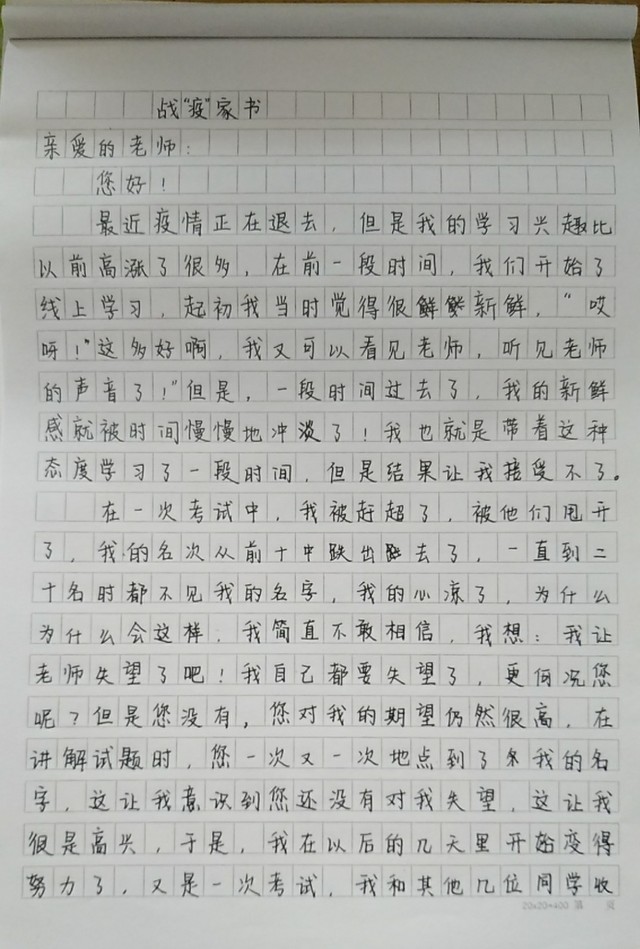 战“疫”家书
亲爱的老师：
您好！
最近疫情正在退去，但是我的学习兴趣比
以前高涨了很多，在前一段时间，我们开始了
线上学习，起初我当时觉得很新鲜，“哎
呀！”这多好啊，我又可以看见老师，听见老师
的声音了！”但是，一段时间过去了，我的新鲜
感就被时间慢慢地冲淡了！我也就是带着这种
态度学习了一段时间，但是结果让我接受不了。
在一次考试中，我被赶超了，被他们甩开
了，我的名次从前十中跌出去了，一直到二
十名时都不见我的名字，我的心凉了，为什么
为什么会这样，我简直不敢相信，我想：我让
老师失望了吧！我自己都要失望了，更何况您
呢？但是您没有，您对我的期望仍然很高，在
讲解试题时，您一次又一次地点到了我的名
字，这让我意识到您还没有对我失望，这让我
很是高兴，于是，我在以后的几天里开始变得
努力了，又是一次考试，我和其他几位同学收
20×20=400 第 页